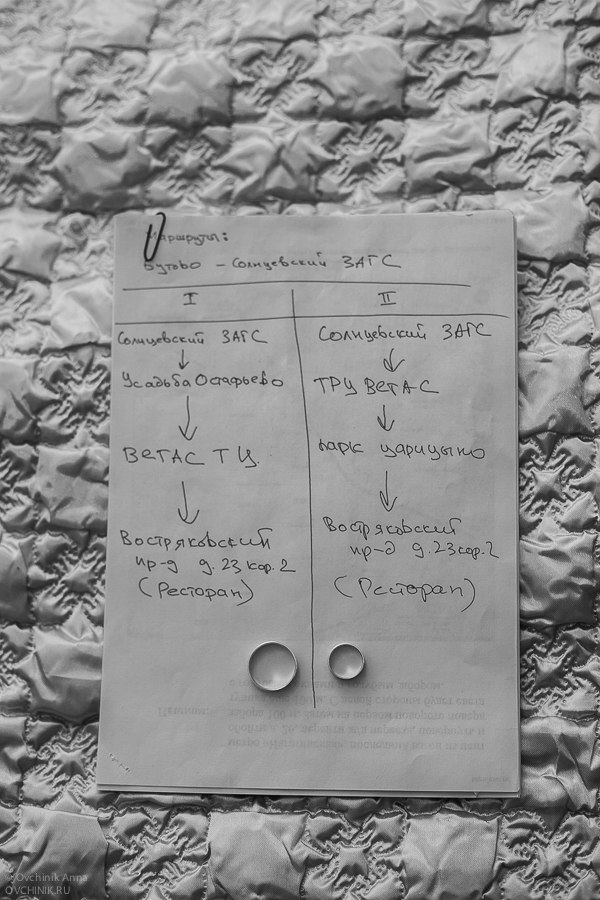 Маршруты:
Бутово – Солнцевский ЗАГС
I
Солнцевский ЗАГС
Усадьба Остафьево
ВЕГАС ТЦ.
Востряковский
пр-д д.23 кор.2
(Ресторан)
II
Солнцевский ЗАГС
ТРЦ ВЕГАС
парк царицыно
Востряковский
пр-д д.23 кор.2
(Ресторан)
©Ovchinik Anna
OVCHINIK.RU